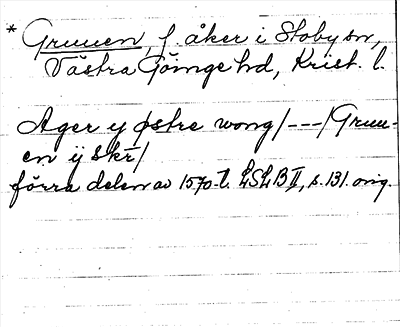 * Gruuen, f. åker i Stoby sn,
Västra Göinge hd, Krist. l.
Ager y østre wong/---/Gruu-
en ij skr/
förra delen av 1570-t. LSLB II, s. 131. orig.